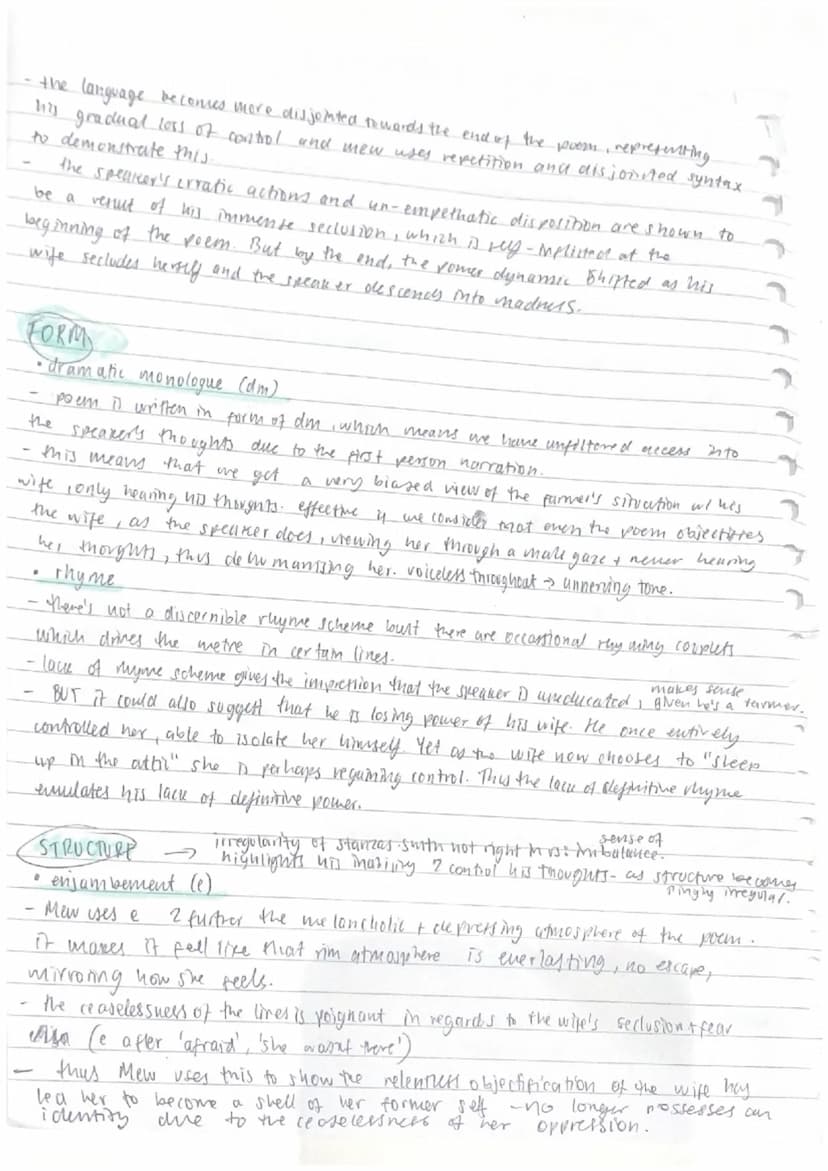 - the language becomes more disjointed towards the end of the poem, representing
his gradual loss of control and mew uses repetition and disjointed syntax
to demonstrate this.
- the speaker's erratic actions and un-empethatic disposition are shown to
be a result of his immense seclusion, which is self-inflicted at the
beginning of the poem. But by the end, the power dynamic shifted as his
wife secludes herself and the speaker descends into madness.
FORM
• dramatic monologue (dm)
- poem is written in form of dm, which means we have unfiltered access into
the speaker's thoughts due to the first person narration.
- this means that we get a very biased view of the farmer's situation w/ his
wife, only hearing his thoughts. effective if we consider that even the poem objectifies
the wife, as the speaker does, viewing her through a male gaze + never hearing
her thoughts, thus dehumanising her. voiceless throughout → unnerving tone.
• rhyme
- there's not a discernible rhyme scheme but there are occasional rhyming couplets
which drives the metre in certain lines.
- lack of rhyme scheme gives the impression that the speaker is uneducated, makes sense given he's a farmer.
- BUT it could also suggest that he is losing power of his wife. He once entirely
controlled her, able to isolate her himself. Yet as the wife now chooses to "sleep
up in the attic" she is perhaps regaining control. Thus the lack of definitive rhyme
emulates his lack of definitive power.
STRUCTURE → irregularity of stanzas. smth not right in rs: sense of imbalance.
highlights his inability 2 control his thoughts - as structure becomes
singly irregular.
• enjambement (e)
- Mew uses e 2 further the melancholic + depressing atmosphere of the poem.
it makes it feel like that atmosphere is everlasting, no escape,
mirroring how she feels.
- the ceaselessness of the lines is poignant in regards to the wife's seclusion + fear
(e after 'afraid', 'she wasn't there')
- thus Mew uses this to show the relentless objectification of the wife has
led her to become a shell of her former self - no longer possesses an
identity due to the ceaselessness of her oppression.